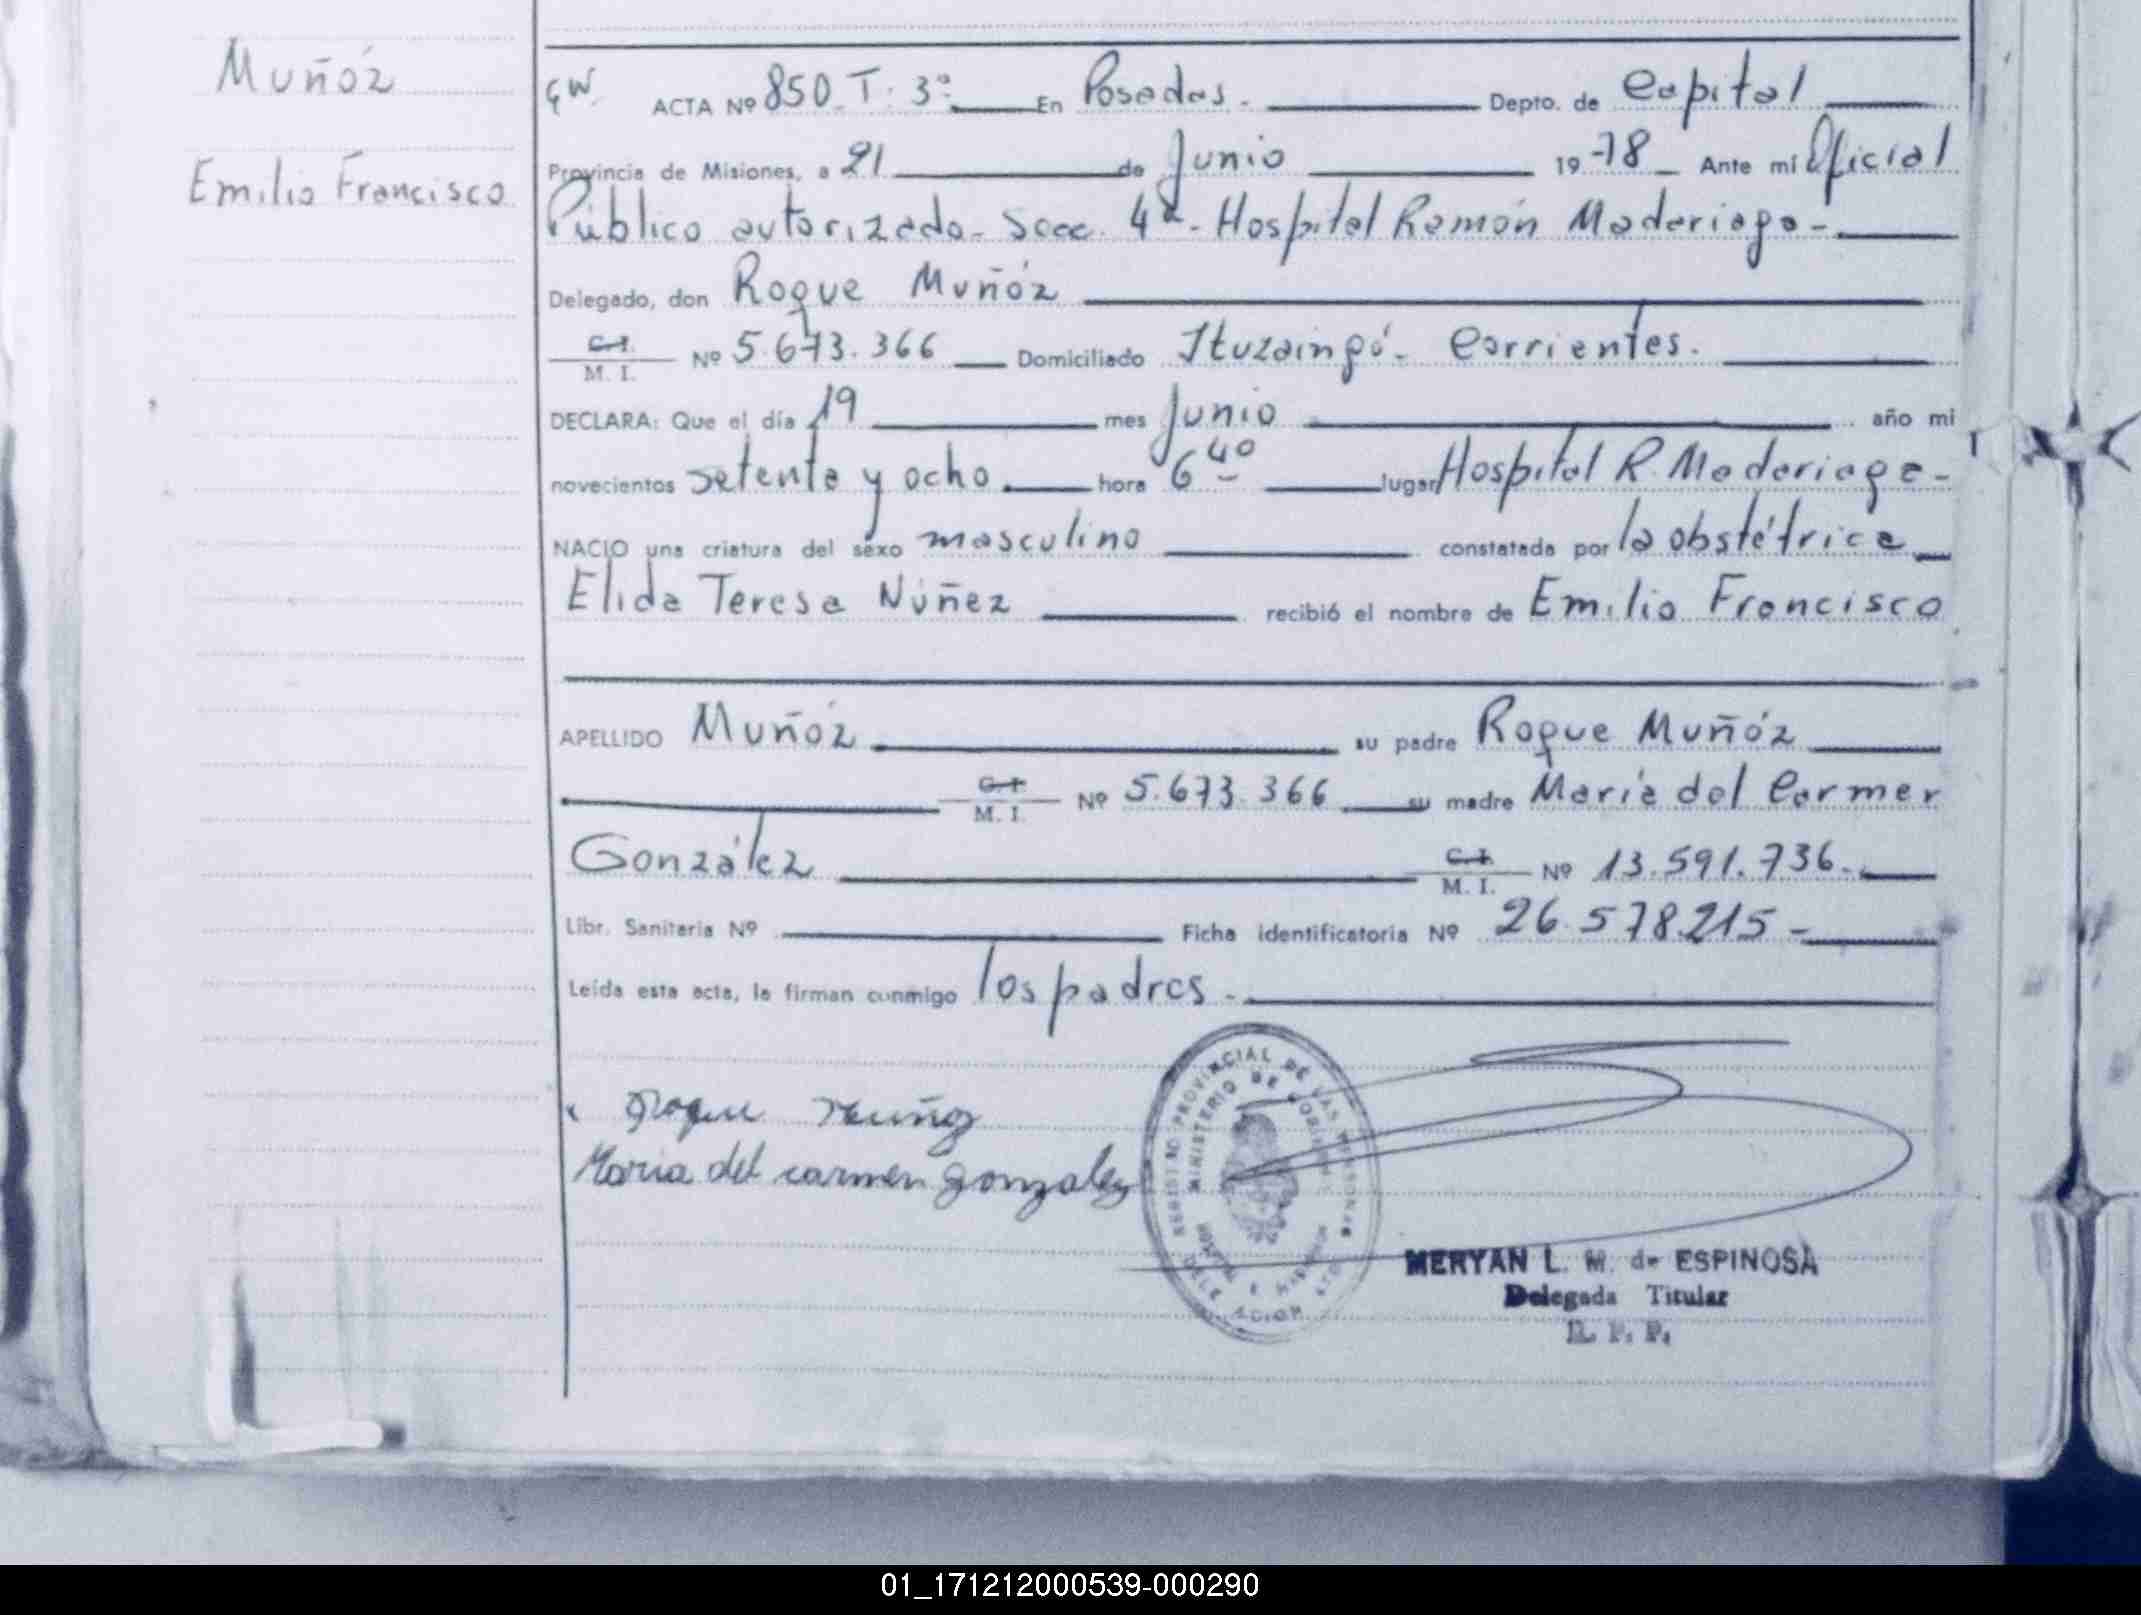 Muñóz
Emilio Francisco
GW. ACTA Nº 850. T. 3º. En Posadas. Depto. de Capital
Provincia de Misiones, a 21 de Junio 1978 Ante mi Oficial
Público autorizado. Secc. 4ª. Hospital Ramón Madariaga -
Delegado, don Roque Muñóz
C.I. M. I. Nº 5.673.366 Domiciliado Ituzaingó. Corrientes.
DECLARA: Que el día 19 mes Junio año mi
novecientos setenta y ocho hora 6 40 lugar Hospital R. Madariaga -
NACIO una criatura del sexo masculino constatada por la obstétrica
Elida Teresa Núñez recibió el nombre de Emilio Francisco
APELLIDO Muñóz su padre Roque Muñóz
C.I. M. I. Nº 5.673.366 su madre María del Carmen
González C.I. M. I. Nº 13.591.736.
Libr. Sanitaria Nº Ficha identificatoria Nº 26.578.215 -
Leída esta acta, la firman conmigo los padres -
Roque Muñoz
Maria del carmen gonzalez
REGISTRO PROVINCIAL DE LAS PERSONAS
MINISTERIO DE GOBIERNO
MERYAN L. M. de ESPINOSA
Delegada Titular
R. P. P.
01_171212000539-000290